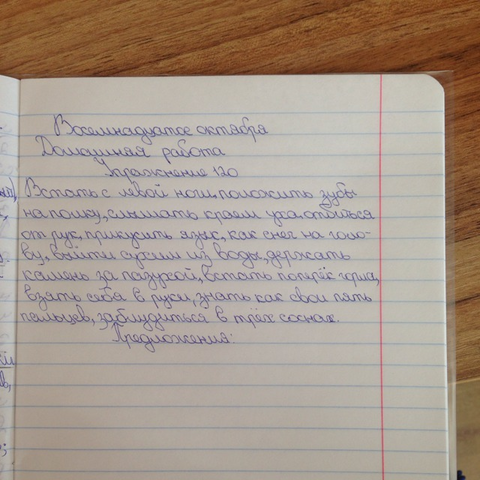 Восемнадцатое октября
Домашная работа
Упражнение 120
Встать с левой ноги, положить зубы
на полку, слышать краем уха, отбиться
от рук, прикусить язык, как снег на голо-
ву, выйти сухим из воды, держать
камень за пазухой, встать поперёк горла,
взять себя в руки, знать как свои пять
пальцев, заблудиться в трёх соснах.
Предложения: